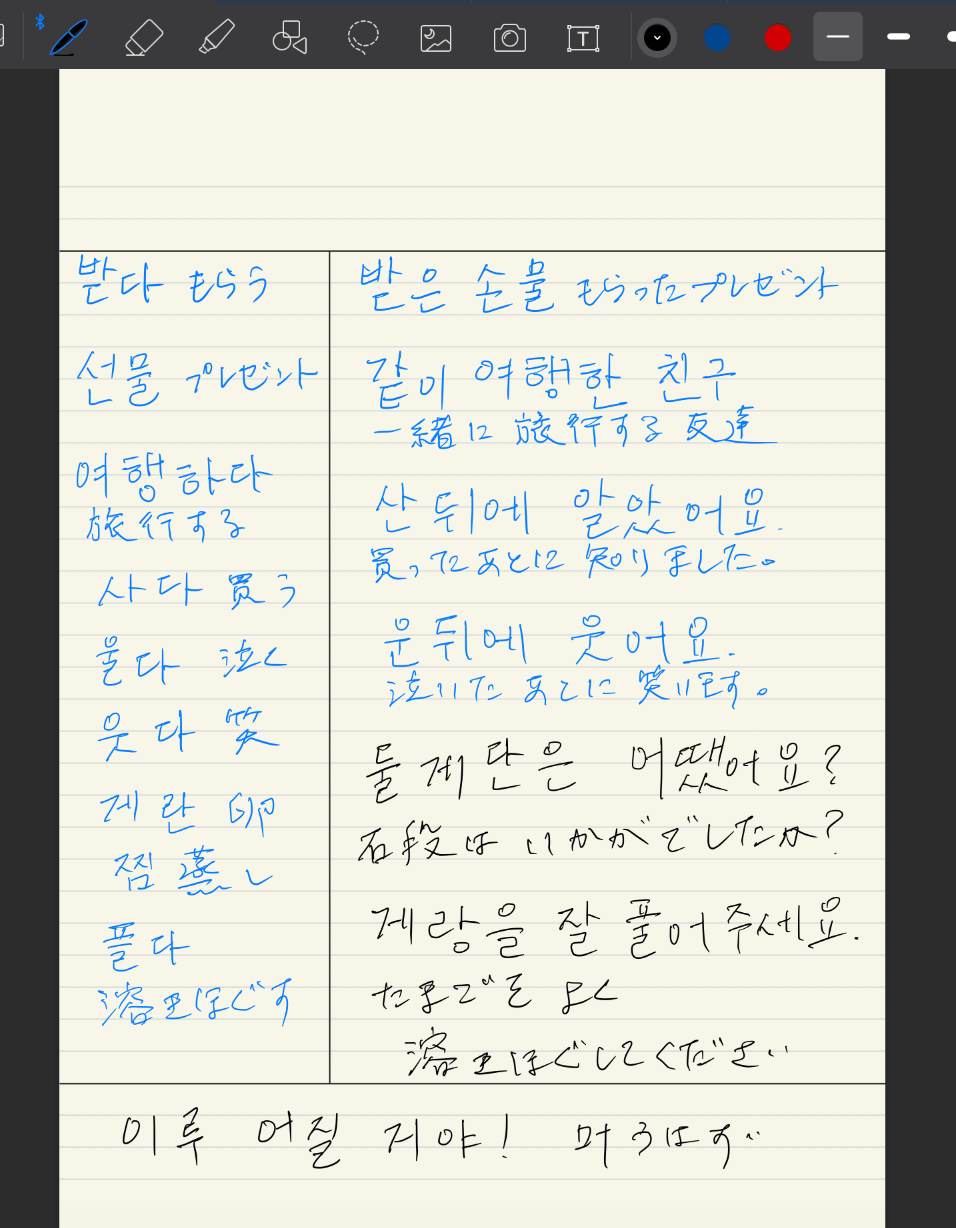 T
받다 もらう
선물 プレゼント
여행하다
旅行する
사다 買う
울다 泣く
웃다 笑
게란 卵
찜 蒸し
플다
溶きほぐす
받은 손물 もらったプレゼント
같이 여행한 친구
一緒に 旅行する 友達
산 뒤에 알았어요.
買ったあとに 知りました。
운뒤에 웃어요.
泣いた あとに 笑います。
돌계단은 어땠어요?
石段は いかがでしたか?
게랑을 잘 풀어주세요.
たまごを よく
溶きほぐしてください
이루 어질 거야!
叶うはず